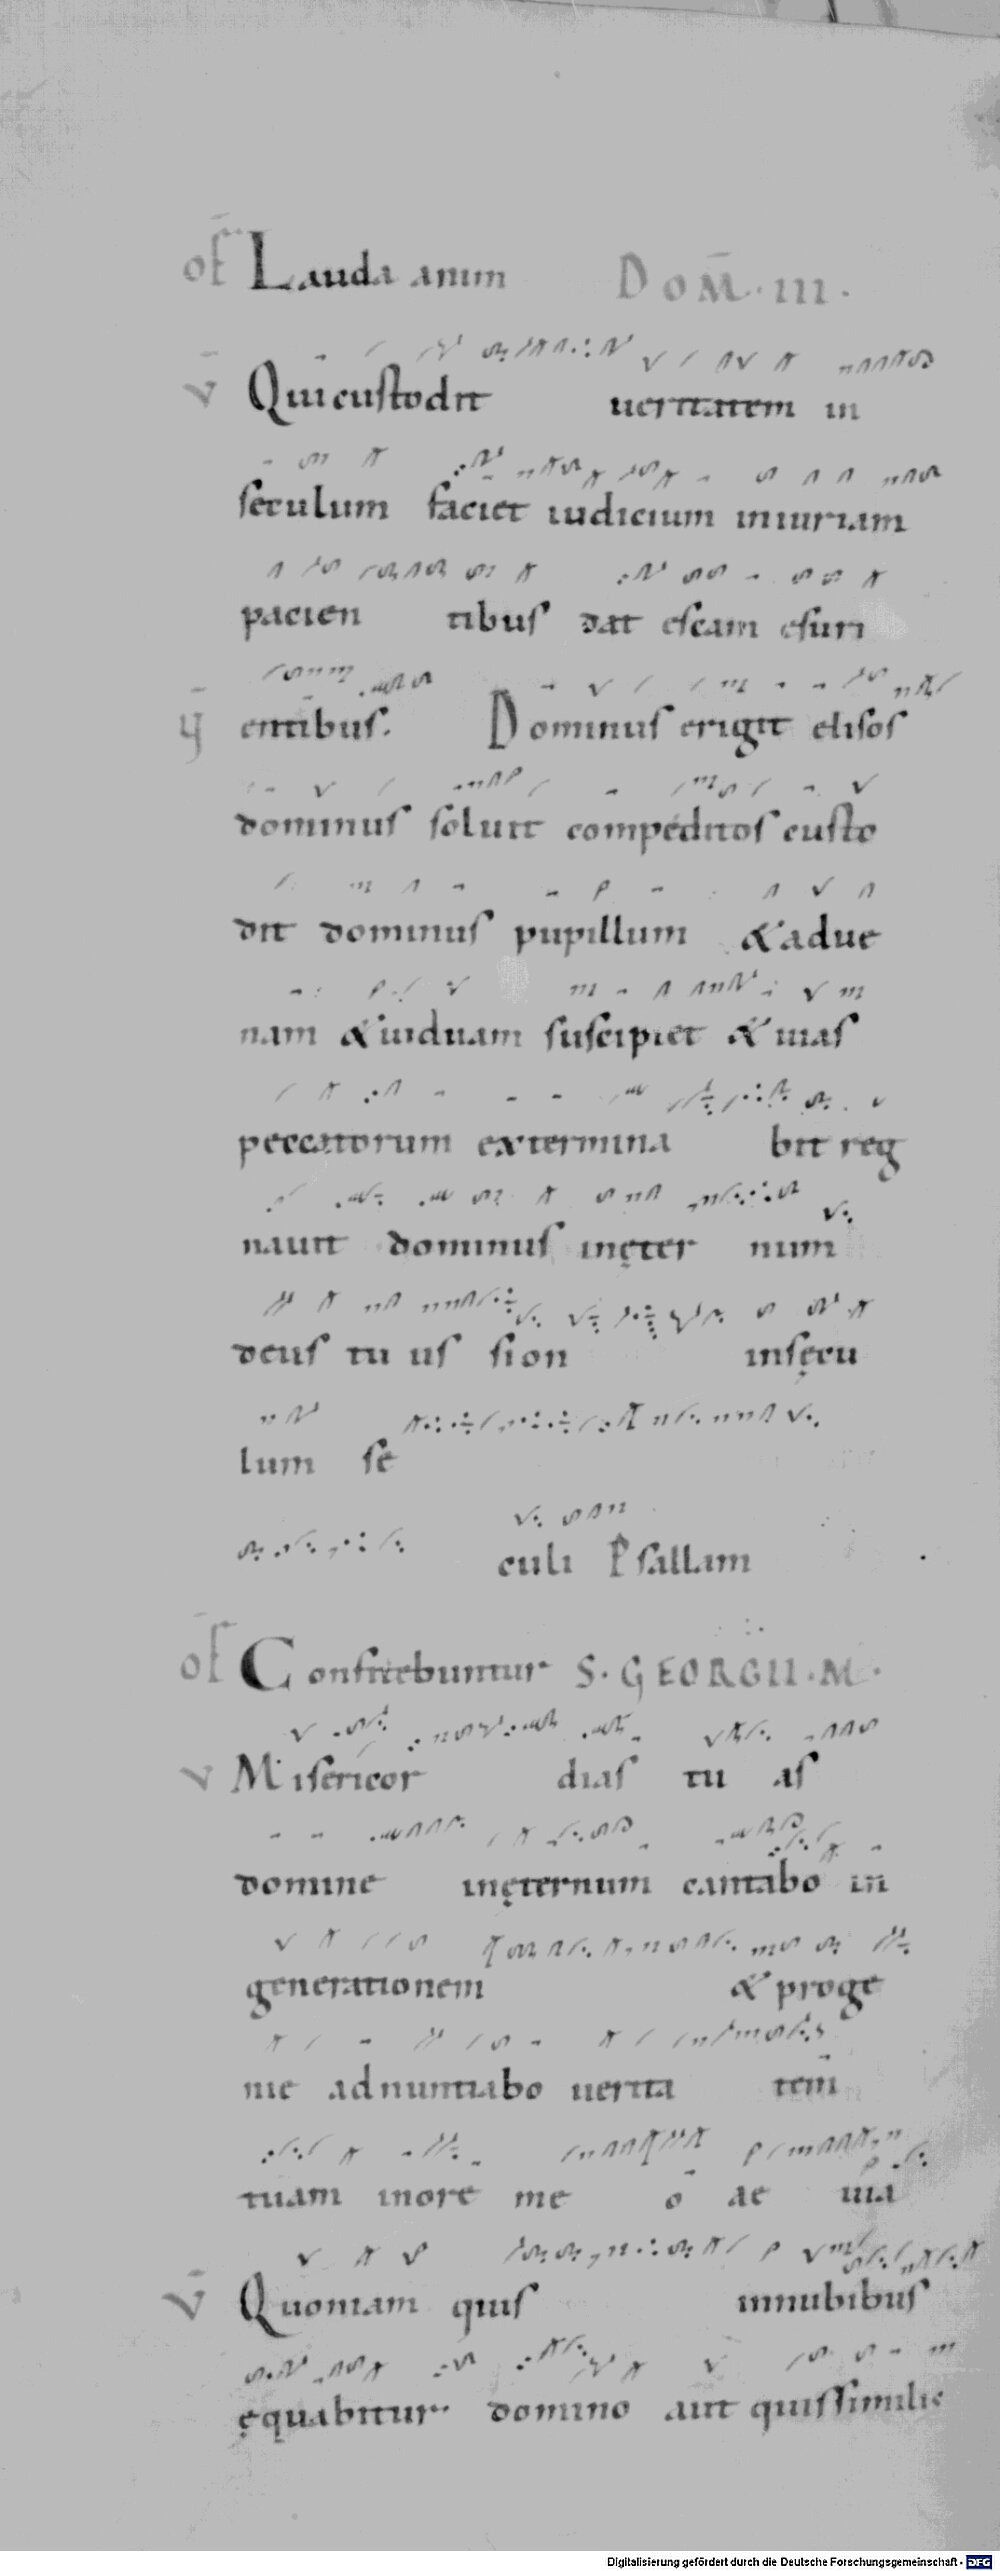 of Lauda anim DOM̄·III·
v̄ Qui custodit ueritatem in
seculum faciet iudicium iniuriam
pacien tibus dat escam esuri
entibus. Dominus erigit elisos
dominus soluit compeditos custo
dit dominus pupillum & adue
nam & uiduam suscipiet & uias
peccatorum extermina bit reg
nauit dominus inęter num
deus tu us sion insęcu
lum se
culi Psallam
of Confitebuntur S·GEORGII·M·
v Misericor dias tu as
domine inęternum cantabo in
generationem & proge
nie adnuntiabo uerita tem
tuam inore me o ae uia
v̄ Quoniam quis innubibus
ęquabitur domino aut quissimilis
Digitalisierung gefördert durch die Deutsche Forschungsgemeinschaft - DFG